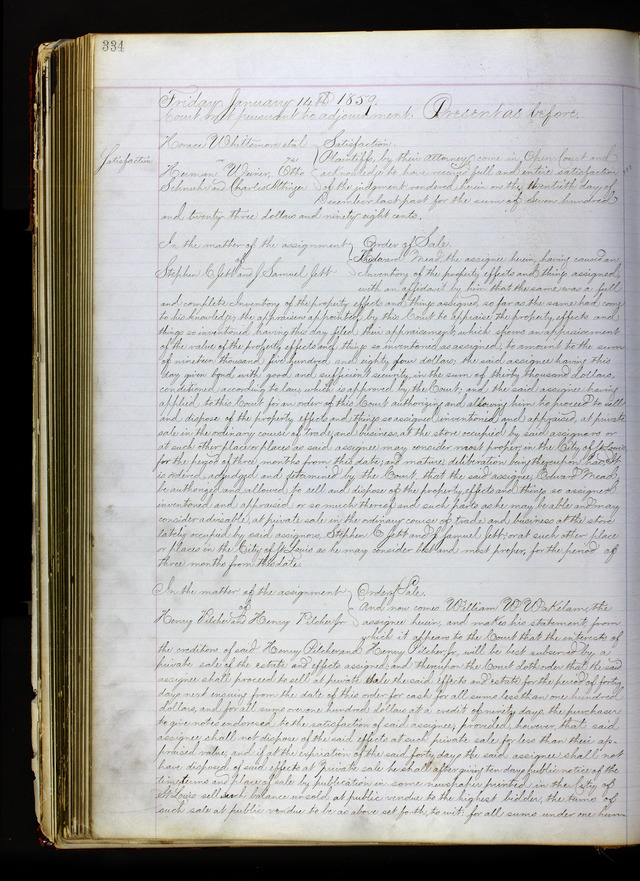 334
Friday January 14th 1859.
Court met pursuant to adjournment. Present as before.
Horace Whittemore et al } Satisfaction.
Satisfaction
vs
Plaintiffs, by their attorney, come in open Court and
Herman Otto
acknowledge to have received full and entire satisfaction
Schnek and Charles
of the judgment rendered herein on the twentieth day of
December last past for the sum of seven hundred
and twenty three dollars and ninety eight cents.
In the matter of the assignment } Order of Sale.
of
Edward Mead, the assignee herein, having caused an
Stephen C Jett and J Samuel Jett
Inventory of the property effects and things assigned,
with an affidavit by him that the same was a full
and complete Inventory of the property effects and things assigned, so far as the same had come
to his knowledge; the appraisers appointed by this Court to appraise the property effects and
things so inventoried having this day filed their appraisement, which shows an appraisement
of the value of the property effects and things so inventoried as assigned, to amount to the sum
of nineteen thousand five hundred and eighty four dollars; the said assignee having this
day given bond with good and sufficient security, in the sum of thirty thousand dollars,
conditioned according to law, which is approved by the Court, and the said assignee having
applied to this Court for an order of this Court authorizing and allowing him to proceed to sell
and dispose of the property effects and things so assigned inventoried and appraised, at private
sale in the ordinary course of trade and business, at the store occupied by said assignors or
at such other place or places as said assignee may consider most proper in the City of St Louis
for the period of three months from this date; and mature deliberation being thereupon had, it
is ordered, adjudged and determined by the Court, that the said assignee, Edward Mead,
be authorized and allowed to sell and dispose of the property effects and things so assigned
inventoried and appraised or so much thereof and such parts as he may be able and may
consider advisable, at private sale in the ordinary course of trade and business at the store
lately occupied by said assignors, Stephen C Jett and J Samuel Jett, or at such other place
or places in the City of St Louis as he may consider best and most proper, for the period of
three months from this date.
In the matter of the assignment } Order of Sale.
of
And now comes William W Wakelam, the
Henry Pilcher and Henry Pilcher Jr
assignee herein, and makes his statement, from
which it appears to the Court that the interests of
the creditors of said Henry Pilcher and Henry Pilcher Jr, will be best subserved by a
private sale of the estate and effects assigned, and thereupon the Court doth order that the said
assignee shall proceed to sell at private sale the said effects and estate for the period of forty
days next ensuing from the date of this order for cash for all sums less than one hundred
dollars, and for all sums over one hundred dollars at a credit of ninety days, the purchaser
to give notes endorsed to the satisfaction of said assignee; provided, however, that said
assignee, shall not dispose of the said effects at such private sale for less than their ap-
praised value, and if at the expiration of the said forty days the said assignee shall not
have disposed of said effects at private sale he shall after giving ten days public notice of the
time, terms and place of sale by publication in some newspaper printed in the City of
St Louis sell such balance unsold, at public vendue to the highest bidder, the terms of
such sale at public vendue to be as above set forth, to wit: for all sums under one hun